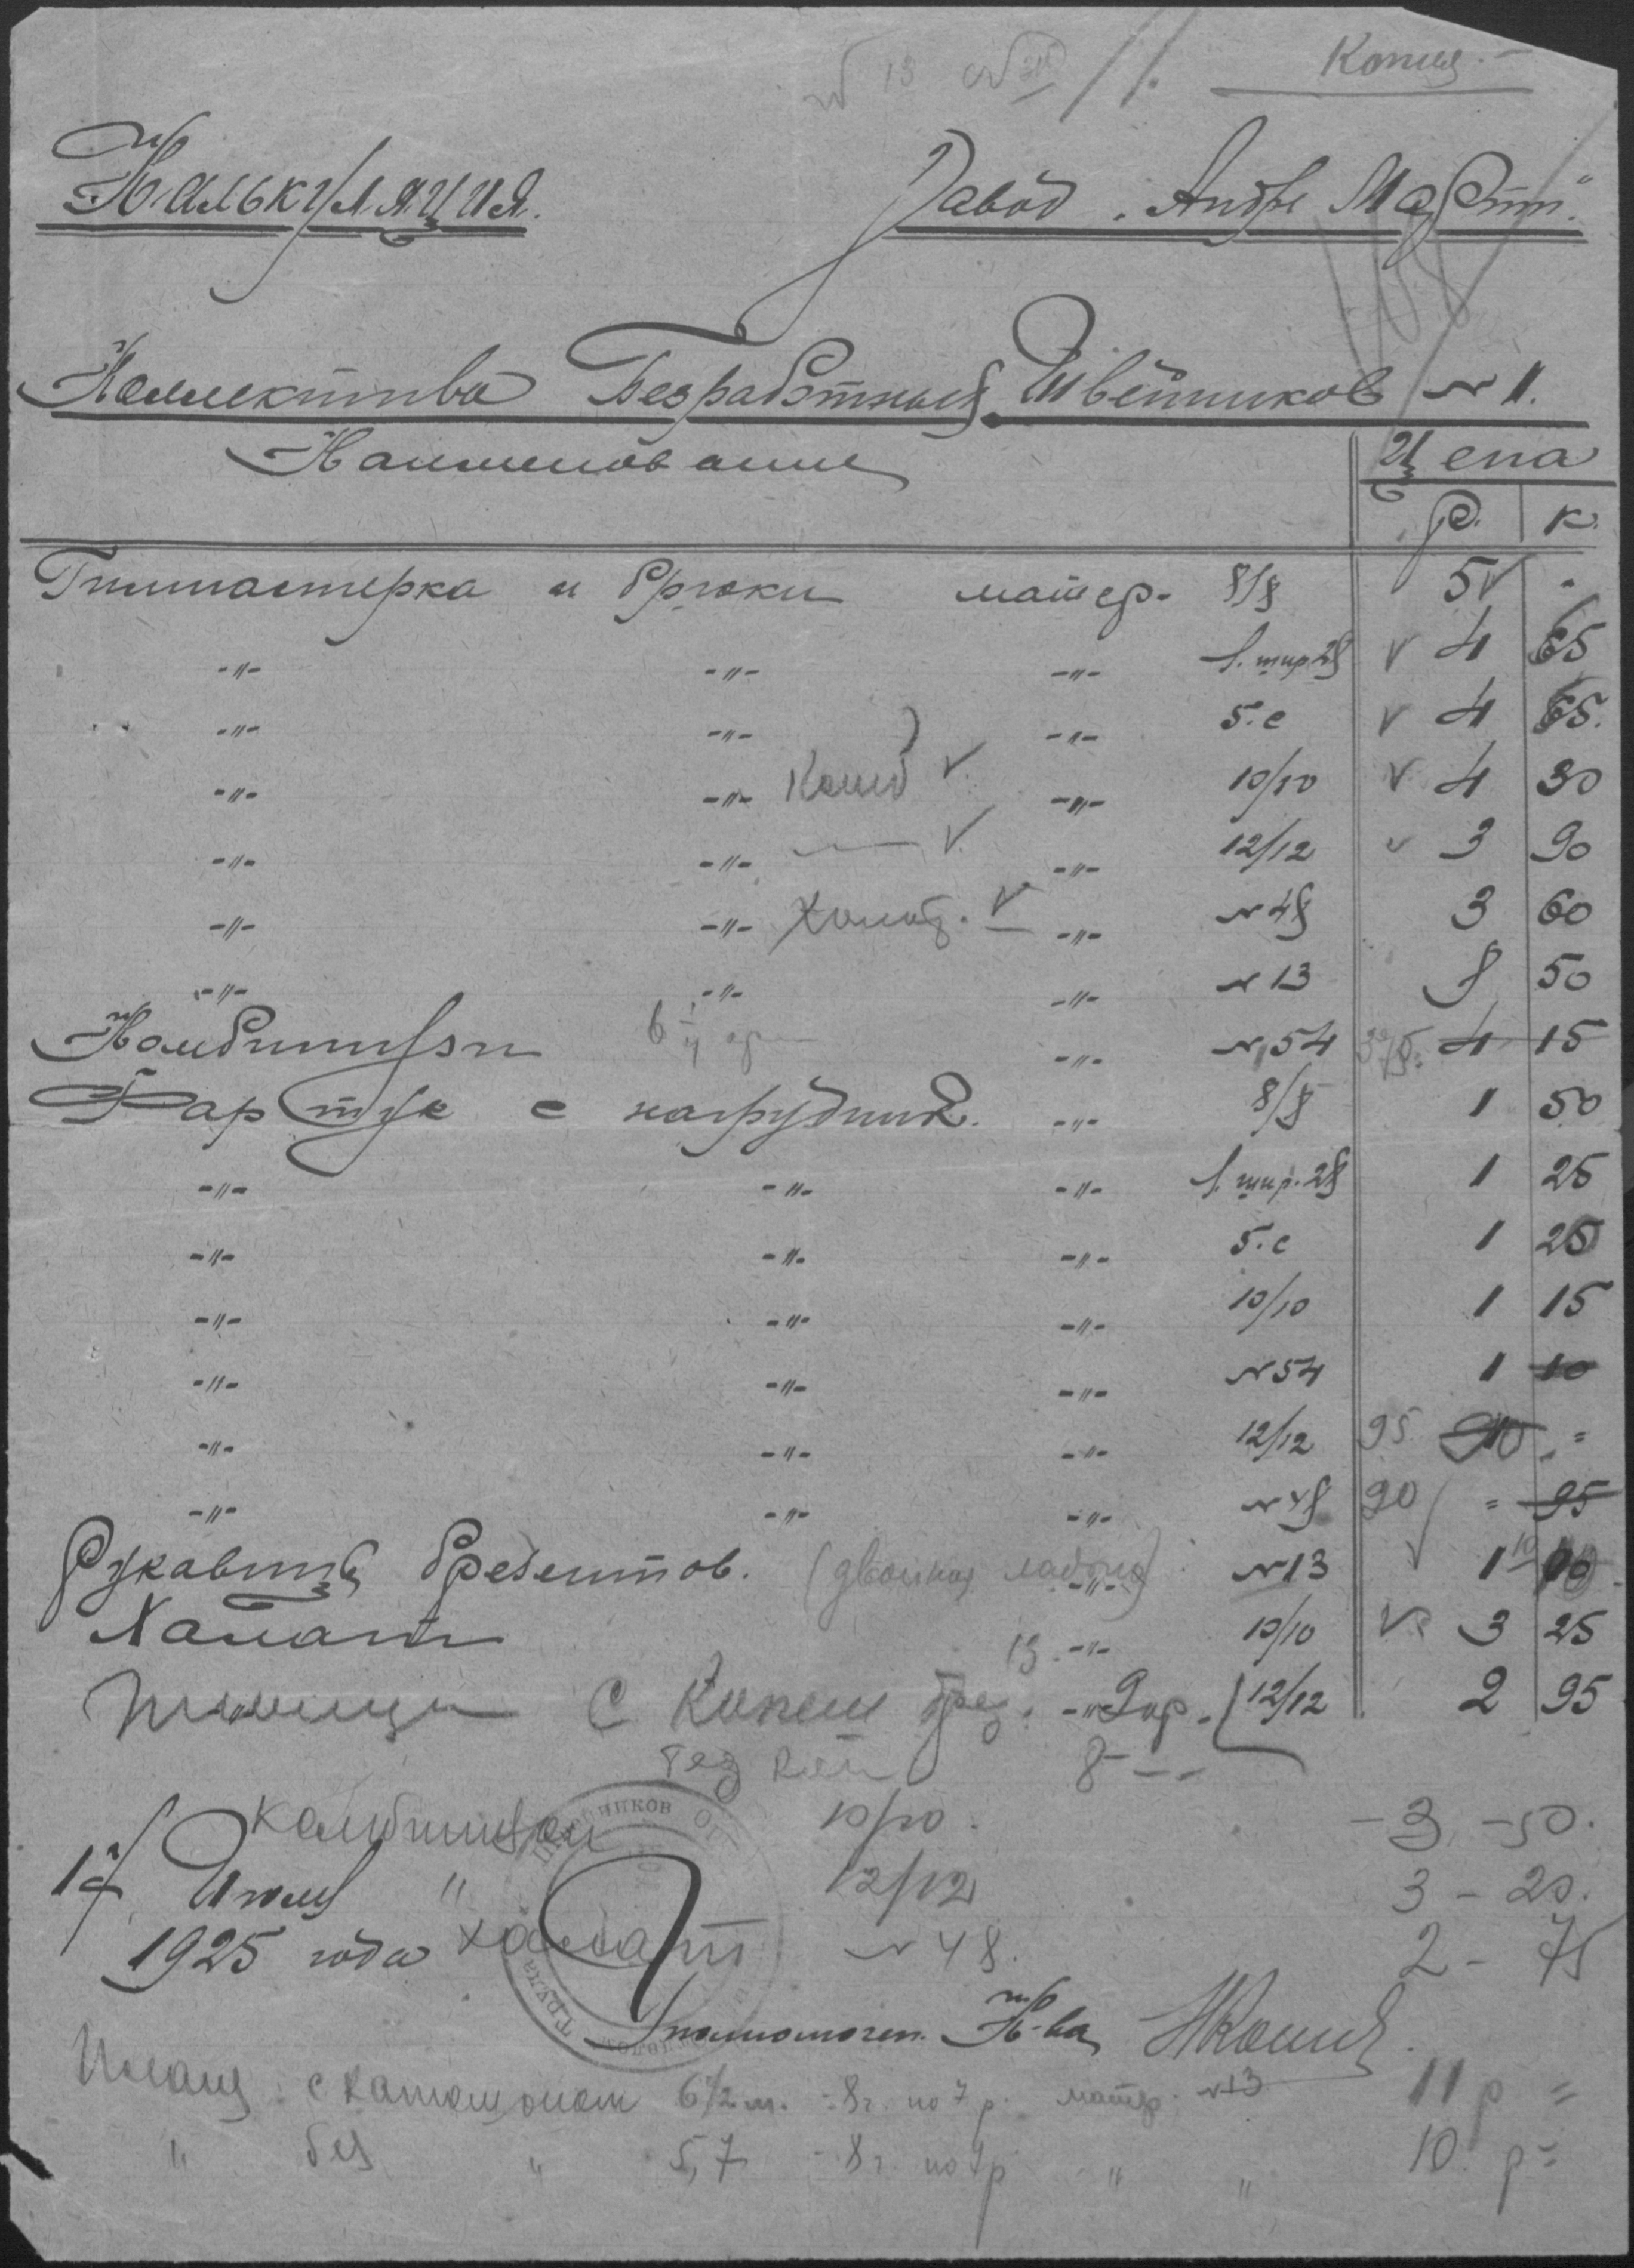 Копия.
№ 13
Калькуляция.
Завод "Андре Марти".
Коллектива Безработных Швейников № 1.
Наименование Цена
р. к.
Гимнастерка и брюки матер. 8/8 5 -
-"- -"- -"- шир 28 4 65
-"- -"- -"- 5.с 4 65.
-"- -"- Комб -"- 10/10 4 30
-"- -"- -"- 12/12 3 90
-"- -"- Халат. -"- № 48 3 60
-"- -"- -"- № 13 8 50
Комбинизон -"- № 54 4 15
Фартук с нагрудник. -"- 8/8 1 50
-"- -"- -"- шир. 28 1 25
-"- -"- -"- 5.с 1 25
-"- -"- -"- 10/10 1 15
-"- -"- -"- № 54 1 10
-"- -"- -"- 12/12 95 =
-"- -"- -"- № 48 90 = 95
Рукавиц брезентов. (двойная ладонь) -"- № 13 1 10
Халат -"- 10/10 3 25
с -"- 12/12 2 95
без 8 - -
Комбинизон 10/10. - 3 - 50.
17 Июля " 12/12 3 - 20.
1925 года халат № 48. 2 - 75
Уполномочен. К-ва
Плащ с капюшоном 6 1/2 м. - 8 г. по 7 р. матер. № 13 11 р =
" без " 5,7 - 8 г. по 7 р " " 10 р =